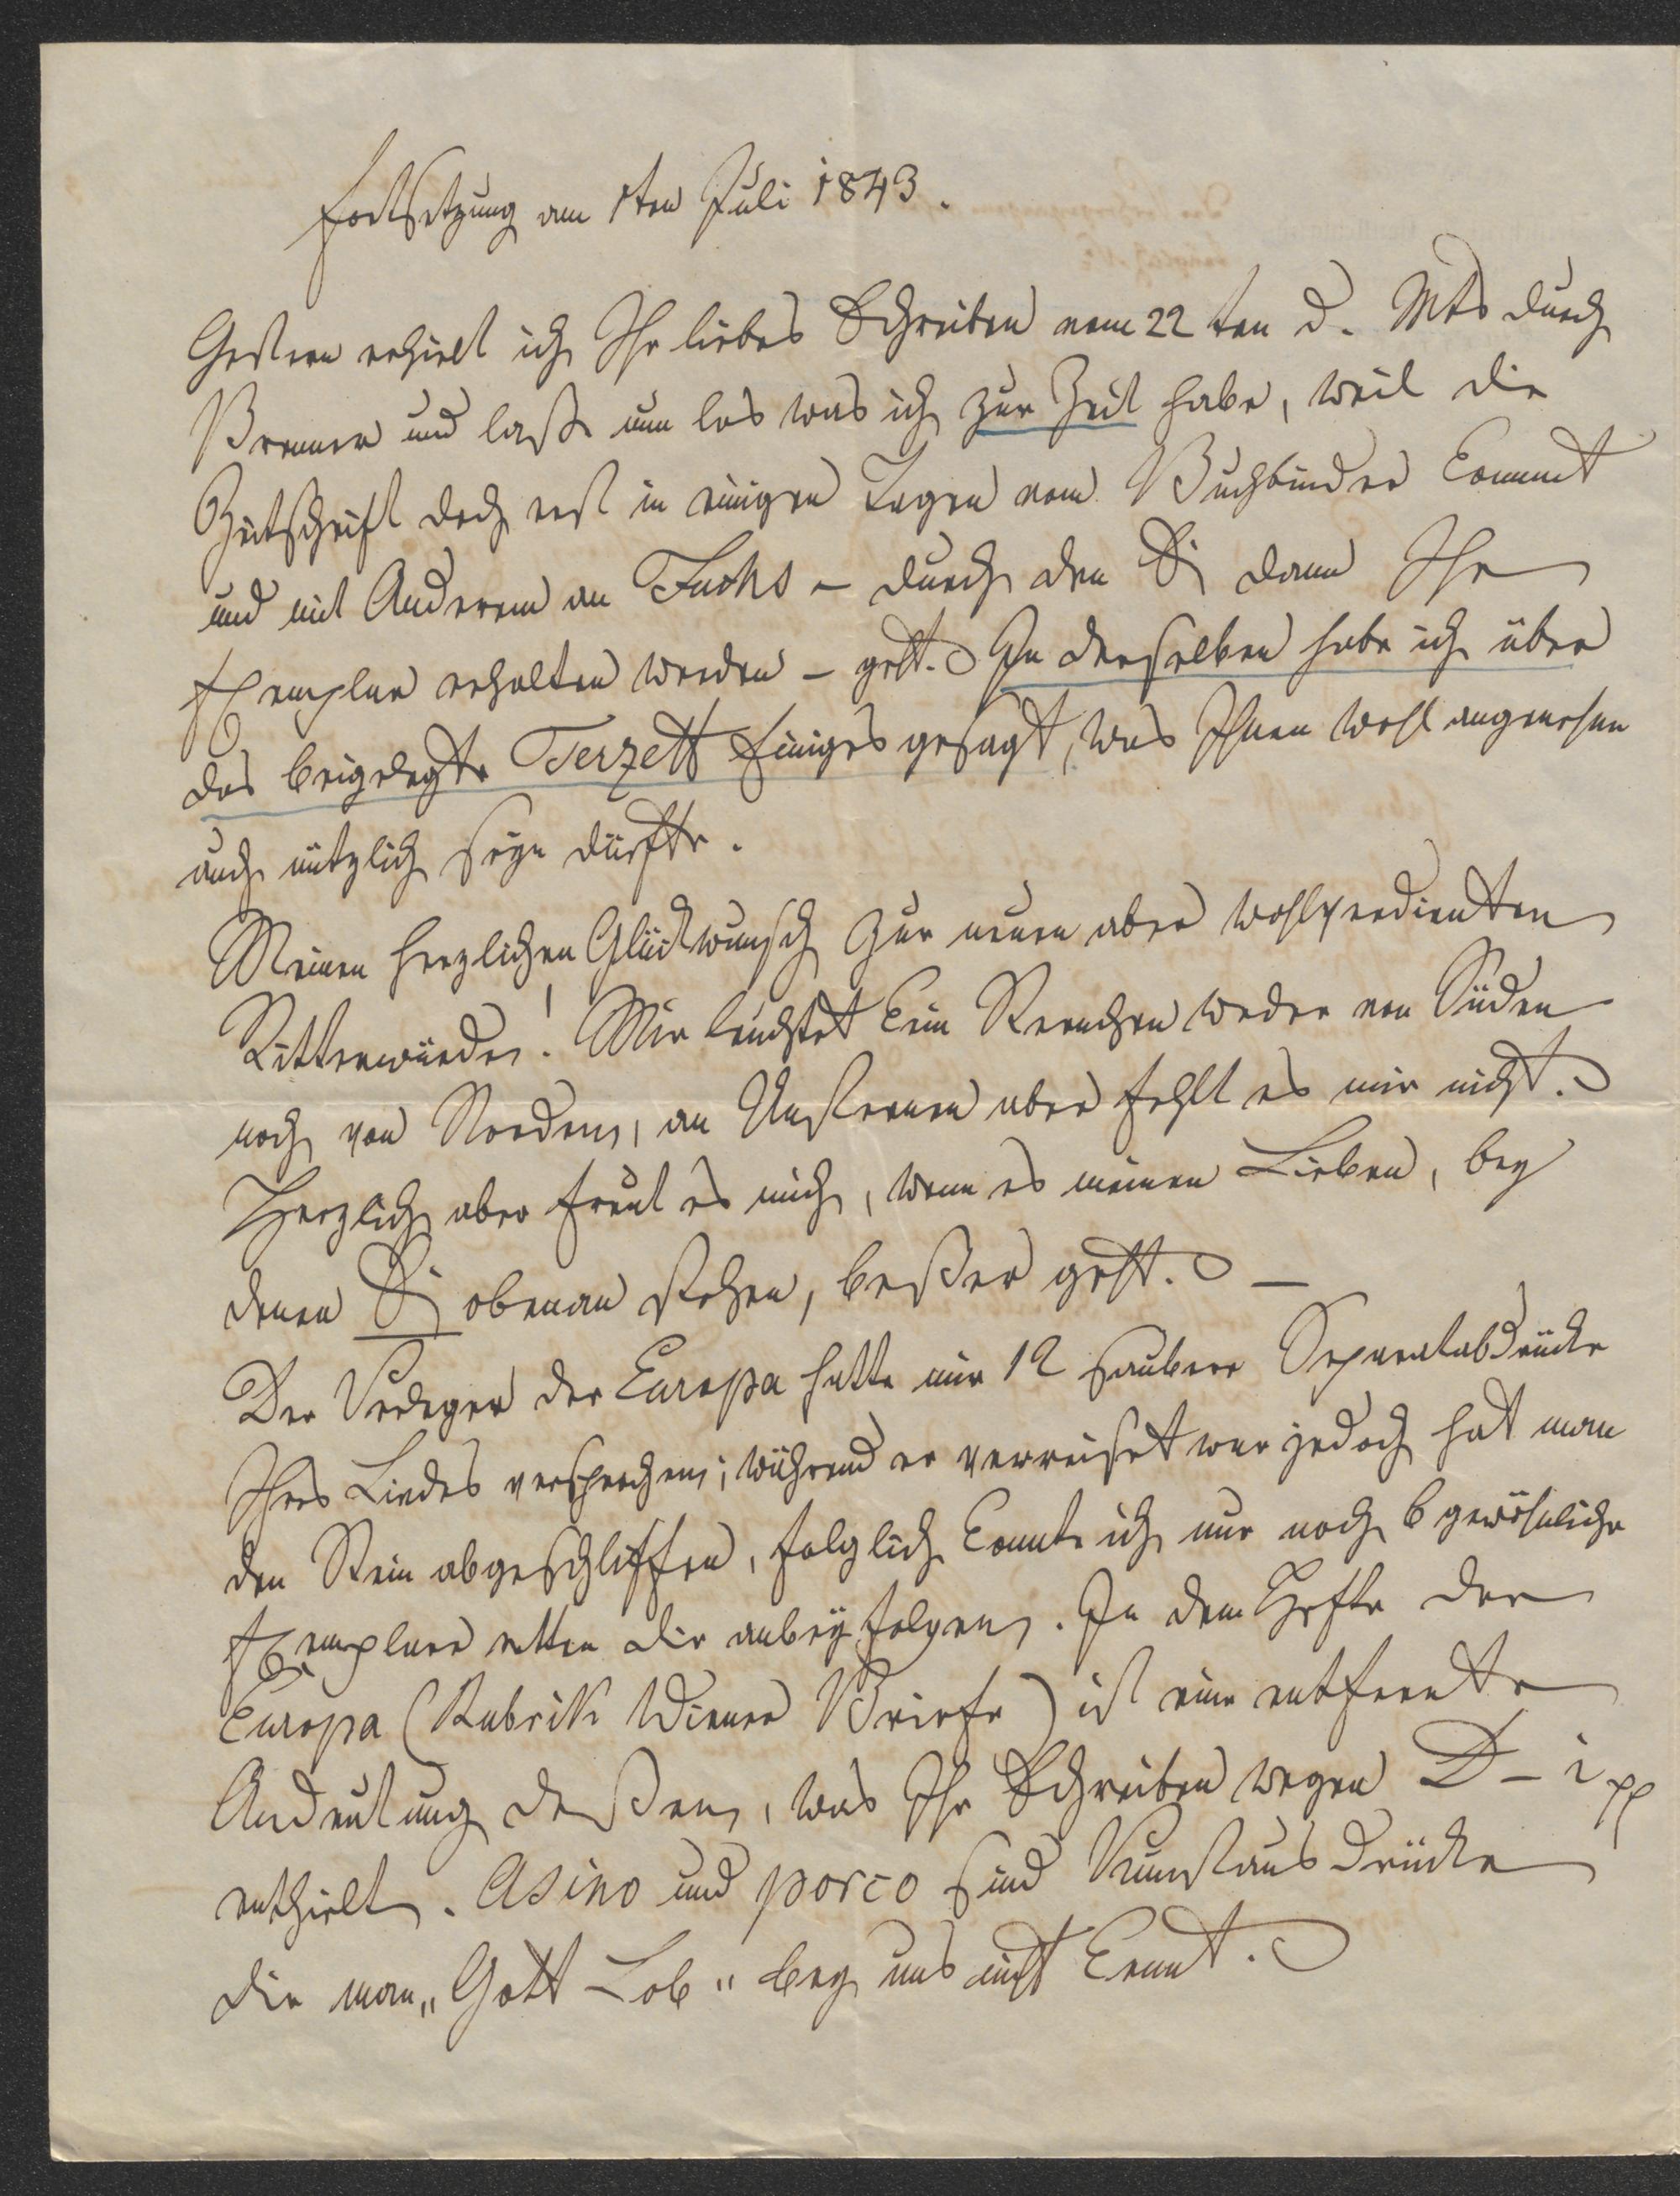 Fortsetzung am 1ten Juli 1843.
Gestern erhielt ich Ihr liebes Schreiben vom 22 ten d. Mts durch
Brenner und laße nun los was ich zur Zeit habe, weil die
Zeitschrift doch erst in einigen Tagen vom Buchbinder kommt
und mit Anderem an Fuchs – durch den Si dann Ihr
Exemplar erhalten werden – geht. In derselben habe ich über
das beigelegte Terzett Einiges gesagt, was Ihnen wohl angenehm
auch nützlich seyn dürfte.
Meinen herzlichen Glückwunsch zur neuen aber wohlverdienten
Ritterwürde! Mir leuchtet kein Sternchen weder von Süden
noch von Norden, an Unsternen aber fehlt es mir nicht.
Herzlich aber freut es mich, wenn es meinen Lieben, bey
denen Si obenan stehen, beßer geht. –
Der Verleger der Europa hatte mir 12 saubere Separatabdrücke
Ihres Liedes versprochen; während er verreiset war jedoch hat man
den Stein abgeschliffen, folglich konnte ich nur noch 6 gewöhnliche
Exemplare retten die anbey folgen. In dem Hefte der
Europa (Rubrik Wiener Briefe) ist eine entfernte
Andeutung deßen, was Ihr Schreiben wegen D – i pp
enthielt. Asino und porco sind Kunstausdrücke
die man „Gott Lob" bey uns nicht kennt.